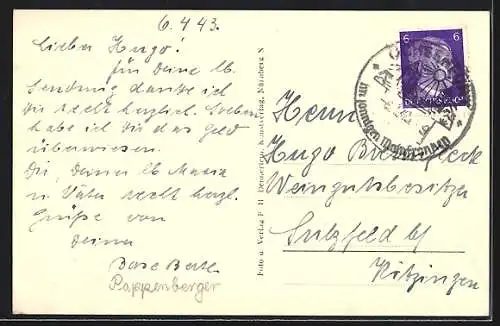 6.4.43.
Lieber Hugo!
für Deine lb.
Sendung danke ich
Dir recht herzlich. Soeben
habe ich Dir das Geld
überwiesen.
Dir, Deiner lb. Mama
u. Vater recht herzl.
Grüße von
Deiner
Base Berta
Pappenberger
Foto u. Verlag F. H. Kunstverlag, Nürnberg N
6 6
Herrn
Hugo
Weingutsbesitzer
Sulzfeld b/
Kitzingen